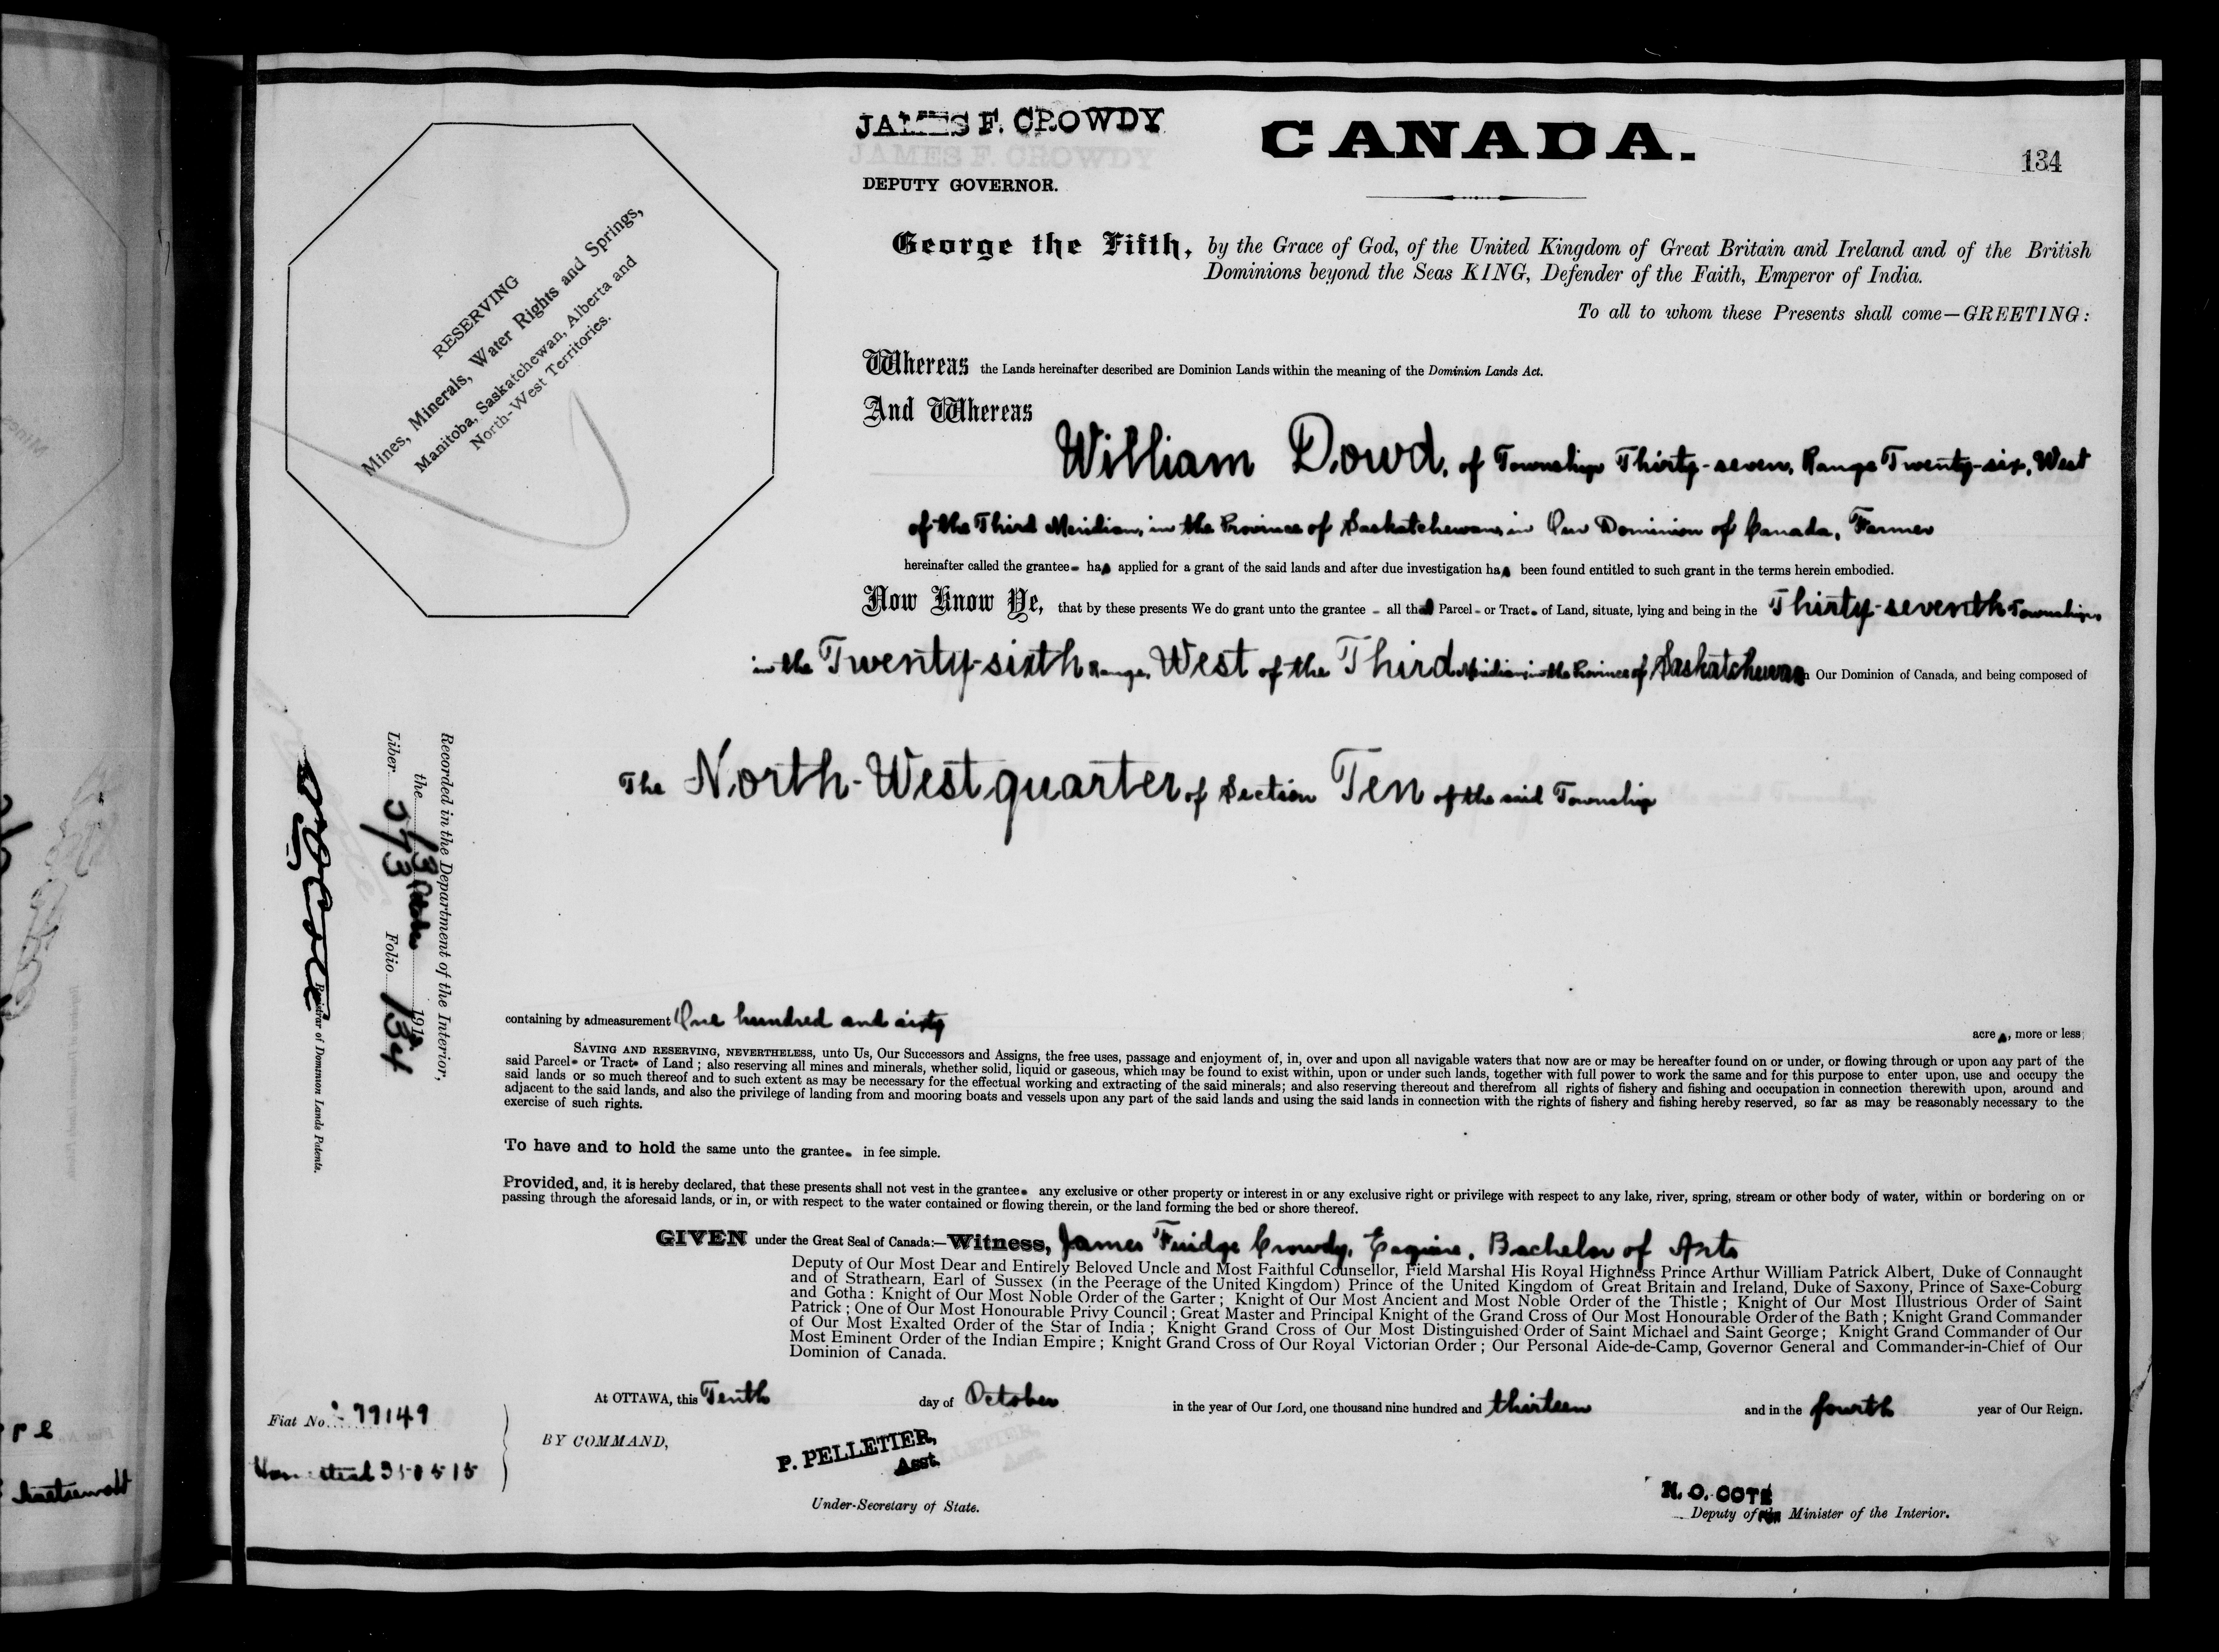 JAMES F. CROWDY
DEPUTY GOVERNOR.
CANADA.
134
RESERVING
Mines, Minerals, Water Rights and Springs,
Manitoba, Saskatchewan, Alberta and
North-West Territories.
George the Fifth, by the Grace of God, of the United Kingdom of Great Britain and Ireland and of the British
Dominions beyond the Seas KING, Defender of the Faith, Emperor of India.
To all to whom these Presents shall come—GREETING:
Whereas the Lands hereinafter described are Dominion Lands within the meaning of the Dominion Lands Act.
And Whereas
William Dowd, of Township Thirty-seven, Range Twenty-six, West
of the Third Meridian, in the Province of Saskatchewan, in Our Dominion of Canada, Farmer
hereinafter called the grantee has applied for a grant of the said lands and after due investigation has been found entitled to such grant in the terms herein embodied.
Now Know Ye, that by these presents We do grant unto the grantee - all that Parcel - or Tract of Land, situate, lying and being in the Thirty-seventh Township,
in the Twenty-sixth Range, West of the Third Meridian, in the Province of Saskatchewan Our Dominion of Canada, and being composed of
The North-West quarter of Section Ten of the said Township
Recorded in the Department of the Interior,
the 13 October 1913
Liber 573 Folio 134
Registrar of Dominion Lands Patents.
containing by admeasurement One hundred and sixty acres, more or less;
SAVING AND RESERVING, NEVERTHELESS, unto Us, Our Successors and Assigns, the free uses, passage and enjoyment of, in, over and upon all navigable waters that now are or may be hereafter found on or under, or flowing through or upon any part of the
said Parcel or Tract of Land; also reserving all mines and minerals, whether solid, liquid or gaseous, which may be found to exist within, upon or under such lands, together with full power to work the same and for this purpose to enter upon, use and occupy the
said lands or so much thereof and to such extent as may be necessary for the effectual working and extracting of the said minerals; and also reserving thereout and therefrom all rights of fishery and fishing and occupation in connection therewith upon, around and
adjacent to the said lands, and also the privilege of landing from and mooring boats and vessels upon any part of the said lands and using the said lands in connection with the rights of fishery and fishing hereby reserved, so far as may be reasonably necessary to the
exercise of such rights.
To have and to hold the same unto the grantee in fee simple.
Provided, and, it is hereby declared, that these presents shall not vest in the grantee any exclusive or other property or interest in or any exclusive right or privilege with respect to any lake, river, spring, stream or other body of water, within or bordering on or
passing through the aforesaid lands, or in, or with respect to the water contained or flowing therein, or the land forming the bed or shore thereof.
GIVEN under the Great Seal of Canada:—Witness, James Fuidge Crowdy, Esquire, Bachelor of Arts
Deputy of Our Most Dear and Entirely Beloved Uncle and Most Faithful Counsellor, Field Marshal His Royal Highness Prince Arthur William Patrick Albert, Duke of Connaught
and of Strathearn, Earl of Sussex (in the Peerage of the United Kingdom) Prince of the United Kingdom of Great Britain and Ireland, Duke of Saxony, Prince of Saxe-Coburg
and Gotha: Knight of Our Most Noble Order of the Garter; Knight of Our Most Ancient and Most Noble Order of the Thistle; Knight of Our Most Illustrious Order of Saint
Patrick; One of Our Most Honourable Privy Council; Great Master and Principal Knight of the Grand Cross of Our Most Honourable Order of the Bath; Knight Grand Commander
of Our Most Exalted Order of the Star of India; Knight Grand Cross of Our Most Distinguished Order of Saint Michael and Saint George; Knight Grand Commander of Our
Most Eminent Order of the Indian Empire; Knight Grand Cross of Our Royal Victorian Order; Our Personal Aide-de-Camp, Governor General and Commander-in-Chief of Our
Dominion of Canada.
At OTTAWA, this Tenth day of October in the year of Our Lord, one thousand nine hundred and thirteen and in the fourth year of Our Reign.
Fiat No. 79149
Homestead 350515
BY COMMAND,
P. PELLETIER,
Asst.
Under-Secretary of State.
N. O. COTE
Deputy of the Minister of the Interior.